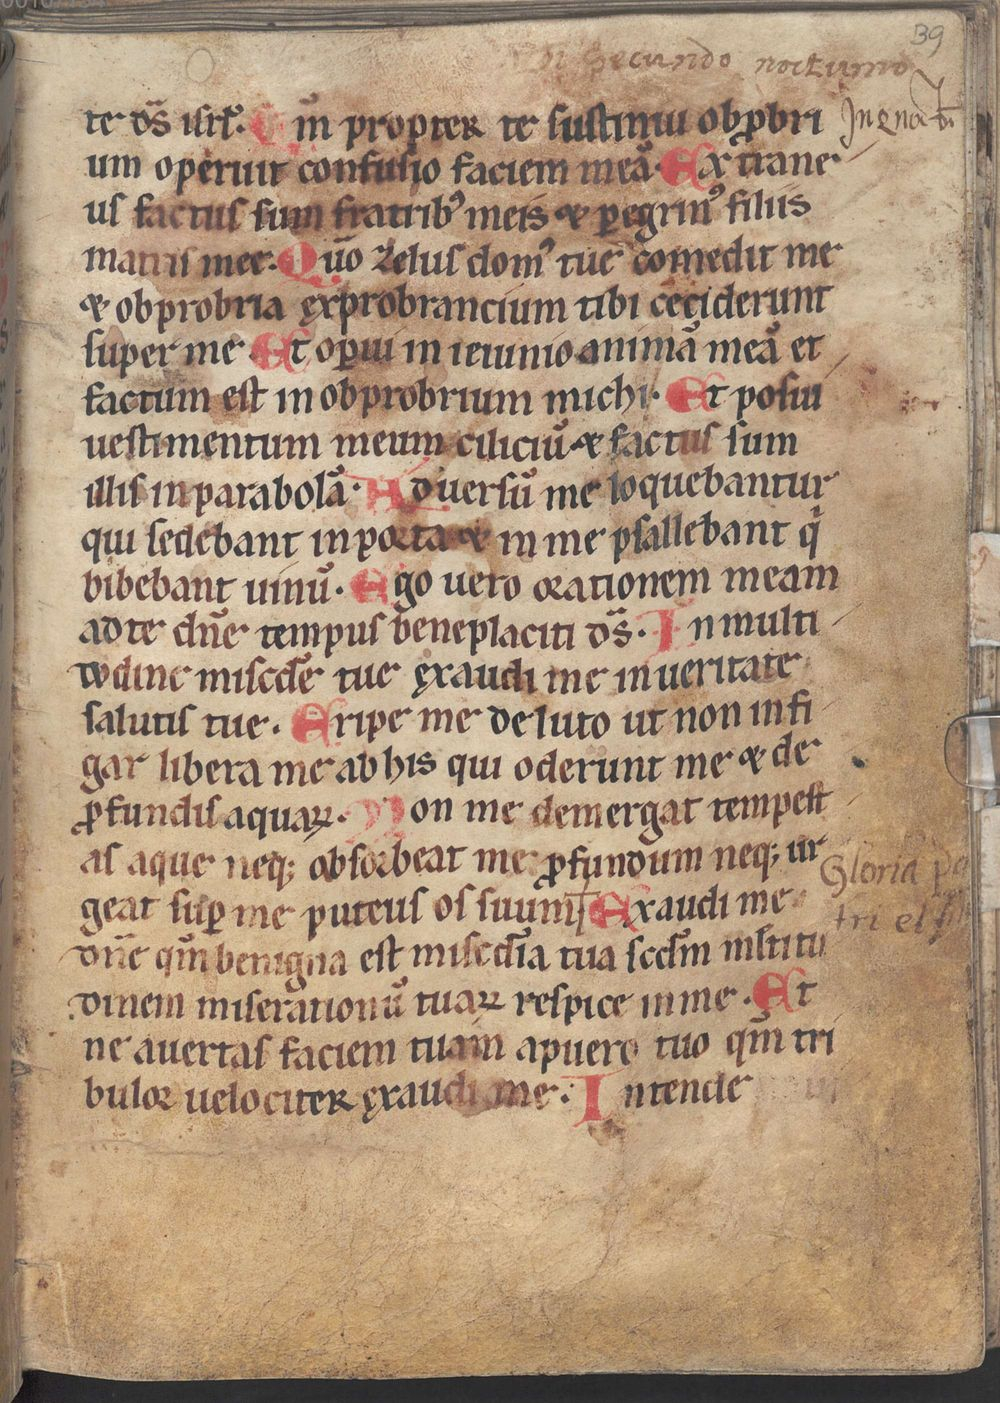 39
In Secundo nocturno
te ds̄ isrl̄. Qm̄ propter te sustinui obꝓbri
um operuit confusio faciem meā. Extrane
us factus sum fratribꝰ meis ⁊ ꝑegrinꝰ filiis
matris mee. Quo zelus domꝰ tue comedit me
⁊ obprobria exprobrancium tibi ceciderunt
super me. Et oꝑui in ieiunio animā meā et
factum est in obprobrium michi. Et posui
uestimentum meum ciliciū ⁊ factus sum
illis in parabolā. Aduersū me loquebantur
qui sedebant in porta ⁊ in me psallebant q̄
bibebant uinū. Ego uero orationem meam
ad te dn̄e tempus beneplaciti ds̄. In multi
tudine miscd̄e tue exaudi me in ueritate
salutis tue. Eripe me de luto ut non infi
gar libera me ab his qui oderunt me ⁊ de
ꝓfundis aquaꝝ. Non me demergat tempest
as aque neq; obsorbeat me ꝓfundum neq; ur
geat suꝑ me puteus os suum Exaudi me
Gloria pa
tri et
dn̄e qm̄ benigna est miscd̄ia tua scd̄m multitu
dinem miserationū tuaꝝ respice in me. Et
ne auertas faciem tuam a puero tuo qm̄ tri
bulor uelociter exaudi me. Intende